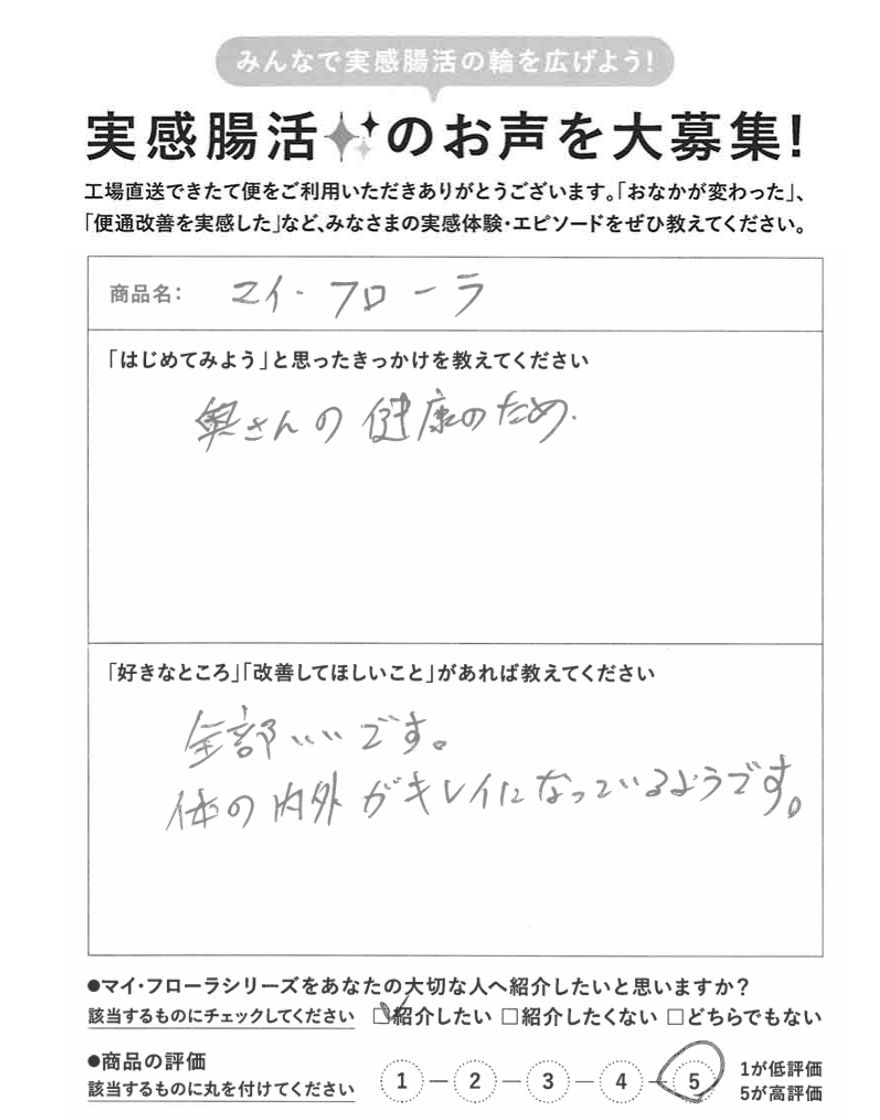 みんなで実感腸活の輪を広げよう!
実感腸活のお声を大募集!
工場直送できたて便をご利用いただきありがとうございます。「おなかが変わった」、
「便通改善を実感した」など、みなさまの実感体験・エピソードをぜひ教えてください。
商品名: マイ・フローラ
「はじめてみよう」と思ったきっかけを教えてください
奥さんの健康のため.
「好きなところ」「改善してほしいこと」があれば教えてください
全部いいです。
体の内外がキレイになっているようです。
●マイ・フローラシリーズをあなたの大切な人へ紹介したいと思いますか?
該当するものにチェックしてください ☑紹介したい □紹介したくない □どちらでもない
●商品の評価
該当するものに丸を付けてください 1 — 2 — 3 — 4 — 5
1が低評価
5が高評価